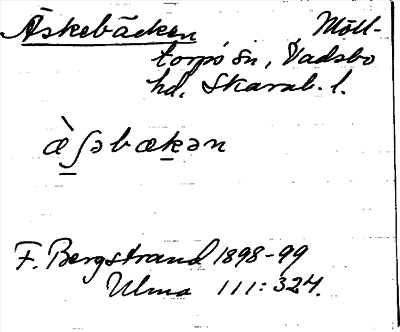 Äskebäcken Möll-
torps sn, Vadsbo
hd, Skarab. l.
æ̀ʃəbækən
F. Bergstrand 1898-99
Ulma 111:324.